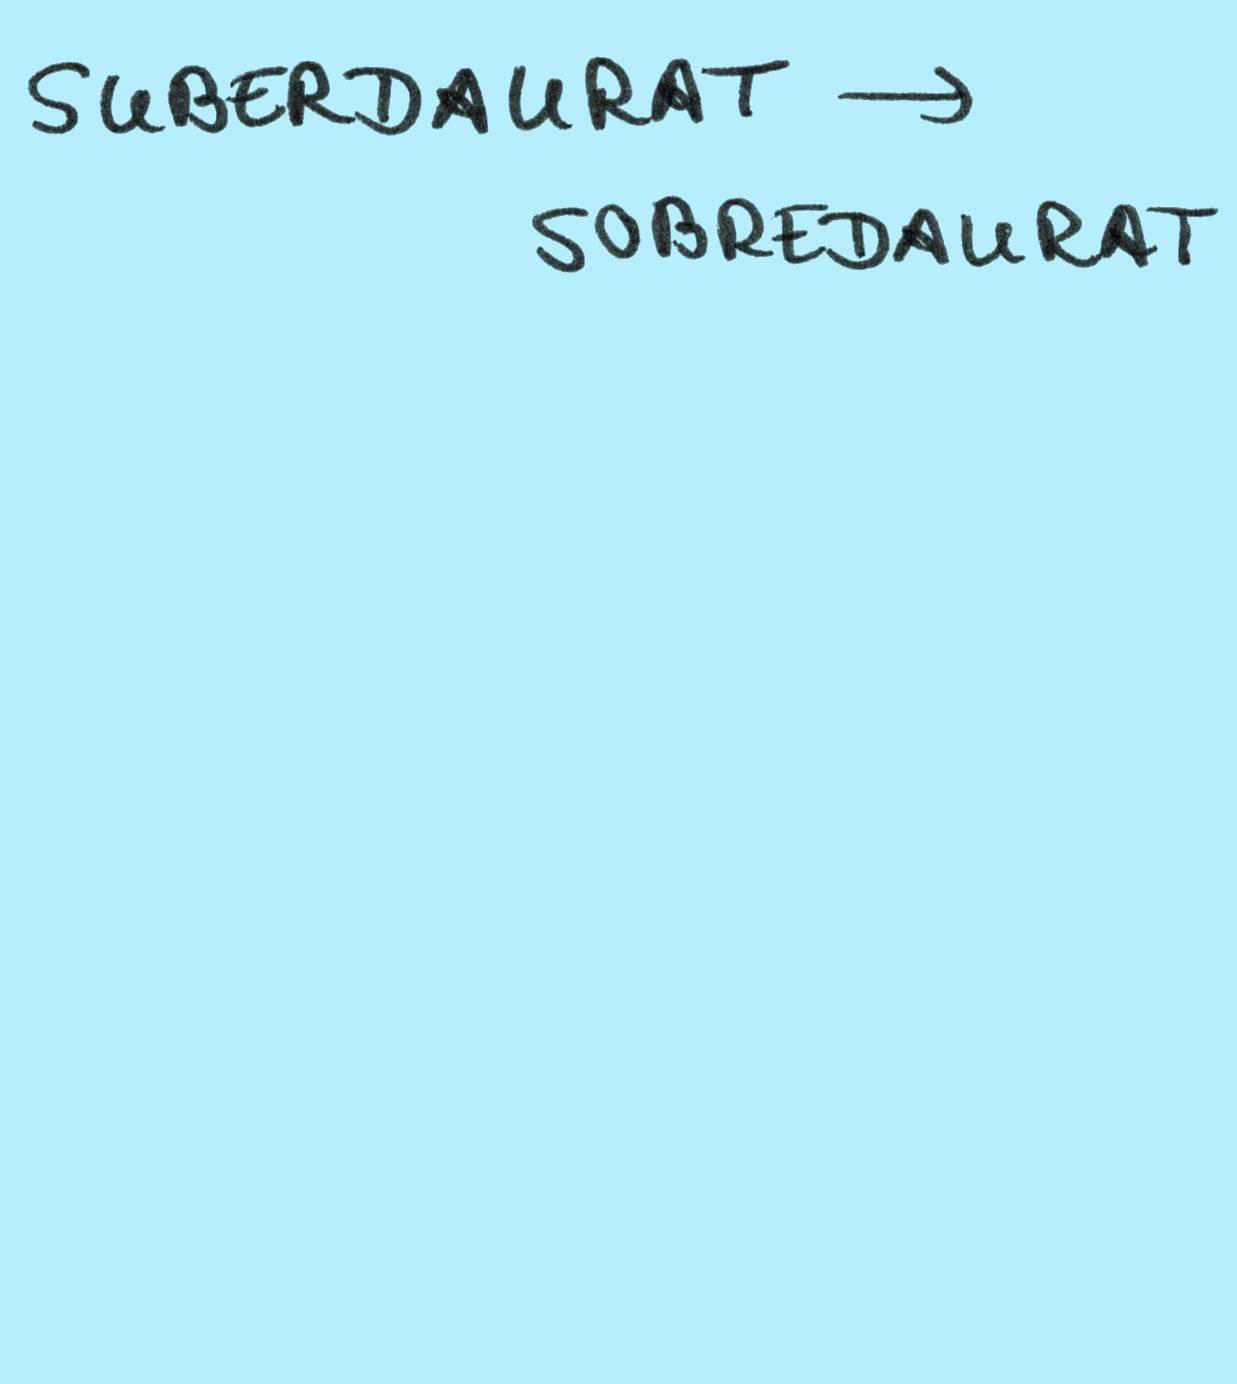 SUBERDAURAT →
SOBREDAURAT